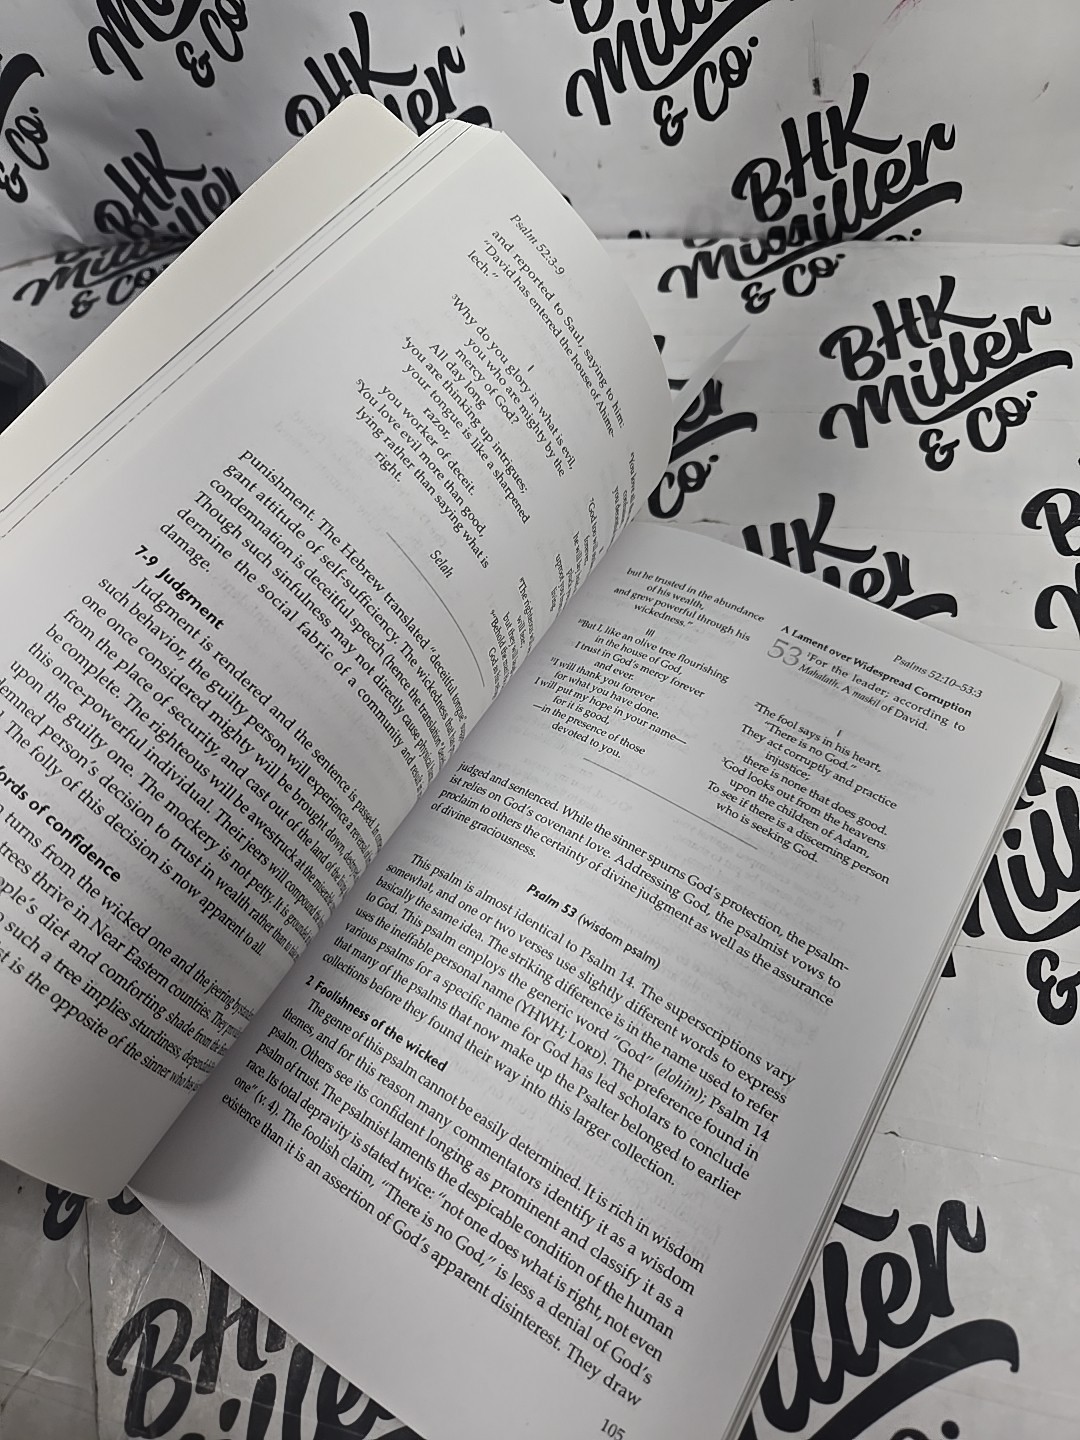 Psalm 52:3-9
and reported to Saul, saying to him:
"David has entered the house of Ahime-
lech."
I
³Why do you glory in what is evil,
you who are mighty by the
mercy of God?
All day long
⁴you are thinking up intrigues;
your tongue is like a sharpened
razor,
you worker of deceit.
⁵You love evil more than good,
lying rather than saying what is
right.
Selah
punishment. The Hebrew translated "deceitful tongue"
gant attitude of self-sufficiency. The wickedness that
condemnation is deceitful speech (hence the translation
Though such sinfulness may not directly cause physical
dermine the social fabric of a community and
damage.
7-9 Judgment
Judgment is rendered and the sentence is passed. In
such behavior, the guilty person will experience a reversal
one once considered mighty will be brought down,
from the place of security, and cast out of the land of the
be complete. The righteous will be awestruck at the
this once-powerful individual. Their jeers will compound
upon the guilty one. The mockery is not petty. It is grounded
demned person's decision to trust in wealth rather than
The folly of this decision is now apparent to all.
ords of confidence
turns from the wicked one and the jeering
trees thrive in Near Eastern countries. They
ple's diet and comforting shade from the
such a tree implies sturdiness,
st is the opposite of the sinner who has
but he trusted in the abundance
of his wealth,
and grew powerful through his
wickedness."
III
¹⁰But I, like an olive tree flourishing
in the house of God,
I trust in God's mercy forever
and ever.
¹¹I will thank you forever
for what you have done.
I will put my hope in your name—
for it is good,
—in the presence of those
devoted to you.
Psalms 52:10–53:3
A Lament over Widespread Corruption
53 ¹For the leader; according to
Mahalath. A maskil of David.
I
²The fool says in his heart,
"There is no God."
They act corruptly and practice
injustice;
there is none that does good.
³God looks out from the heavens
upon the children of Adam,
To see if there is a discerning person
who is seeking God.
judged and sentenced. While the sinner spurns God's protection, the psalm-
ist relies on God's covenant love. Addressing God, the psalmist vows to
proclaim to others the certainty of divine judgment as well as the assurance
of divine graciousness.
Psalm 53 (wisdom psalm)
This psalm is almost identical to Psalm 14. The superscriptions vary
somewhat, and one or two verses use slightly different words to express
basically the same idea. The striking difference is in the name used to refer
to God. This psalm employs the generic word "God" (elohim); Psalm 14
uses the ineffable personal name (YHWH; LORD). The preference found in
various psalms for a specific name for God has led scholars to conclude
that many of the psalms that now make up the Psalter belonged to earlier
collections before they found their way into this larger collection.
2 Foolishness of the wicked
The genre of this psalm cannot be easily determined. It is rich in wisdom
themes, and for this reason many commentators identify it as a wisdom
psalm. Others see its confident longing as prominent and classify it as a
psalm of trust. The psalmist laments the despicable condition of the human
race. Its total depravity is stated twice: "not one does what is right, not even
one" (v. 4). The foolish claim, "There is no God," is less a denial of God's
existence than it is an assertion of God's apparent disinterest. They draw
105
BHK
Miller
& Co.
BHK
Miller
& Co.
BHK
Miller
& Co.
BHK
Miller
& Co.